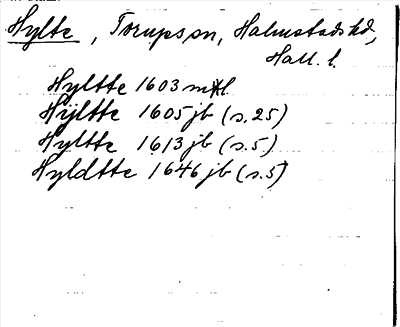 Hylte, Torups sn, Halmstads hd,
Hall. l.
Hyltte 1603 mtl
Hÿltte 1605 jb (s. 25)
Hyltte 1613 jb (s. 5)
Hyldtte 1646 jb (s. 5)